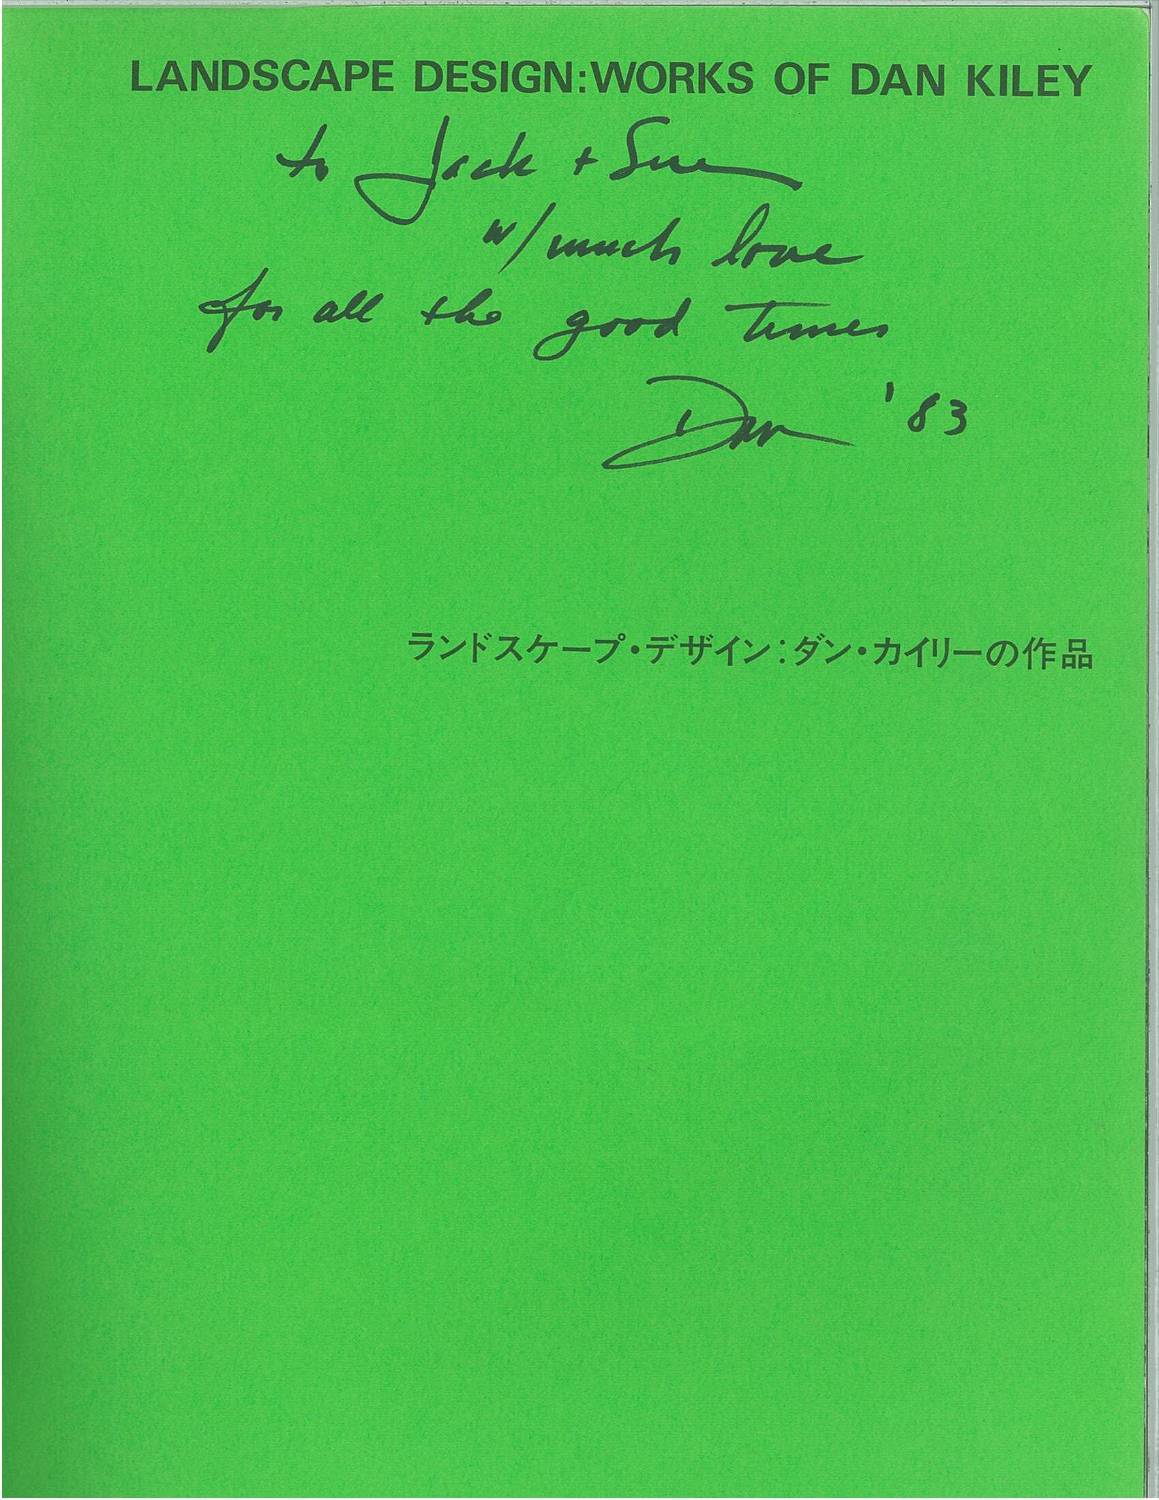 LANDSCAPE DESIGN:WORKS OF DAN KILEY
to Jack + Sue
w/ much love
for all the good times
Dan '83
ランドスケープ・デザイン:ダン・カイリーの作品